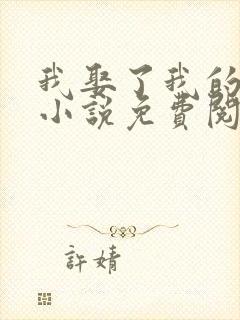 我娶了我的
小說免費閱
許婧